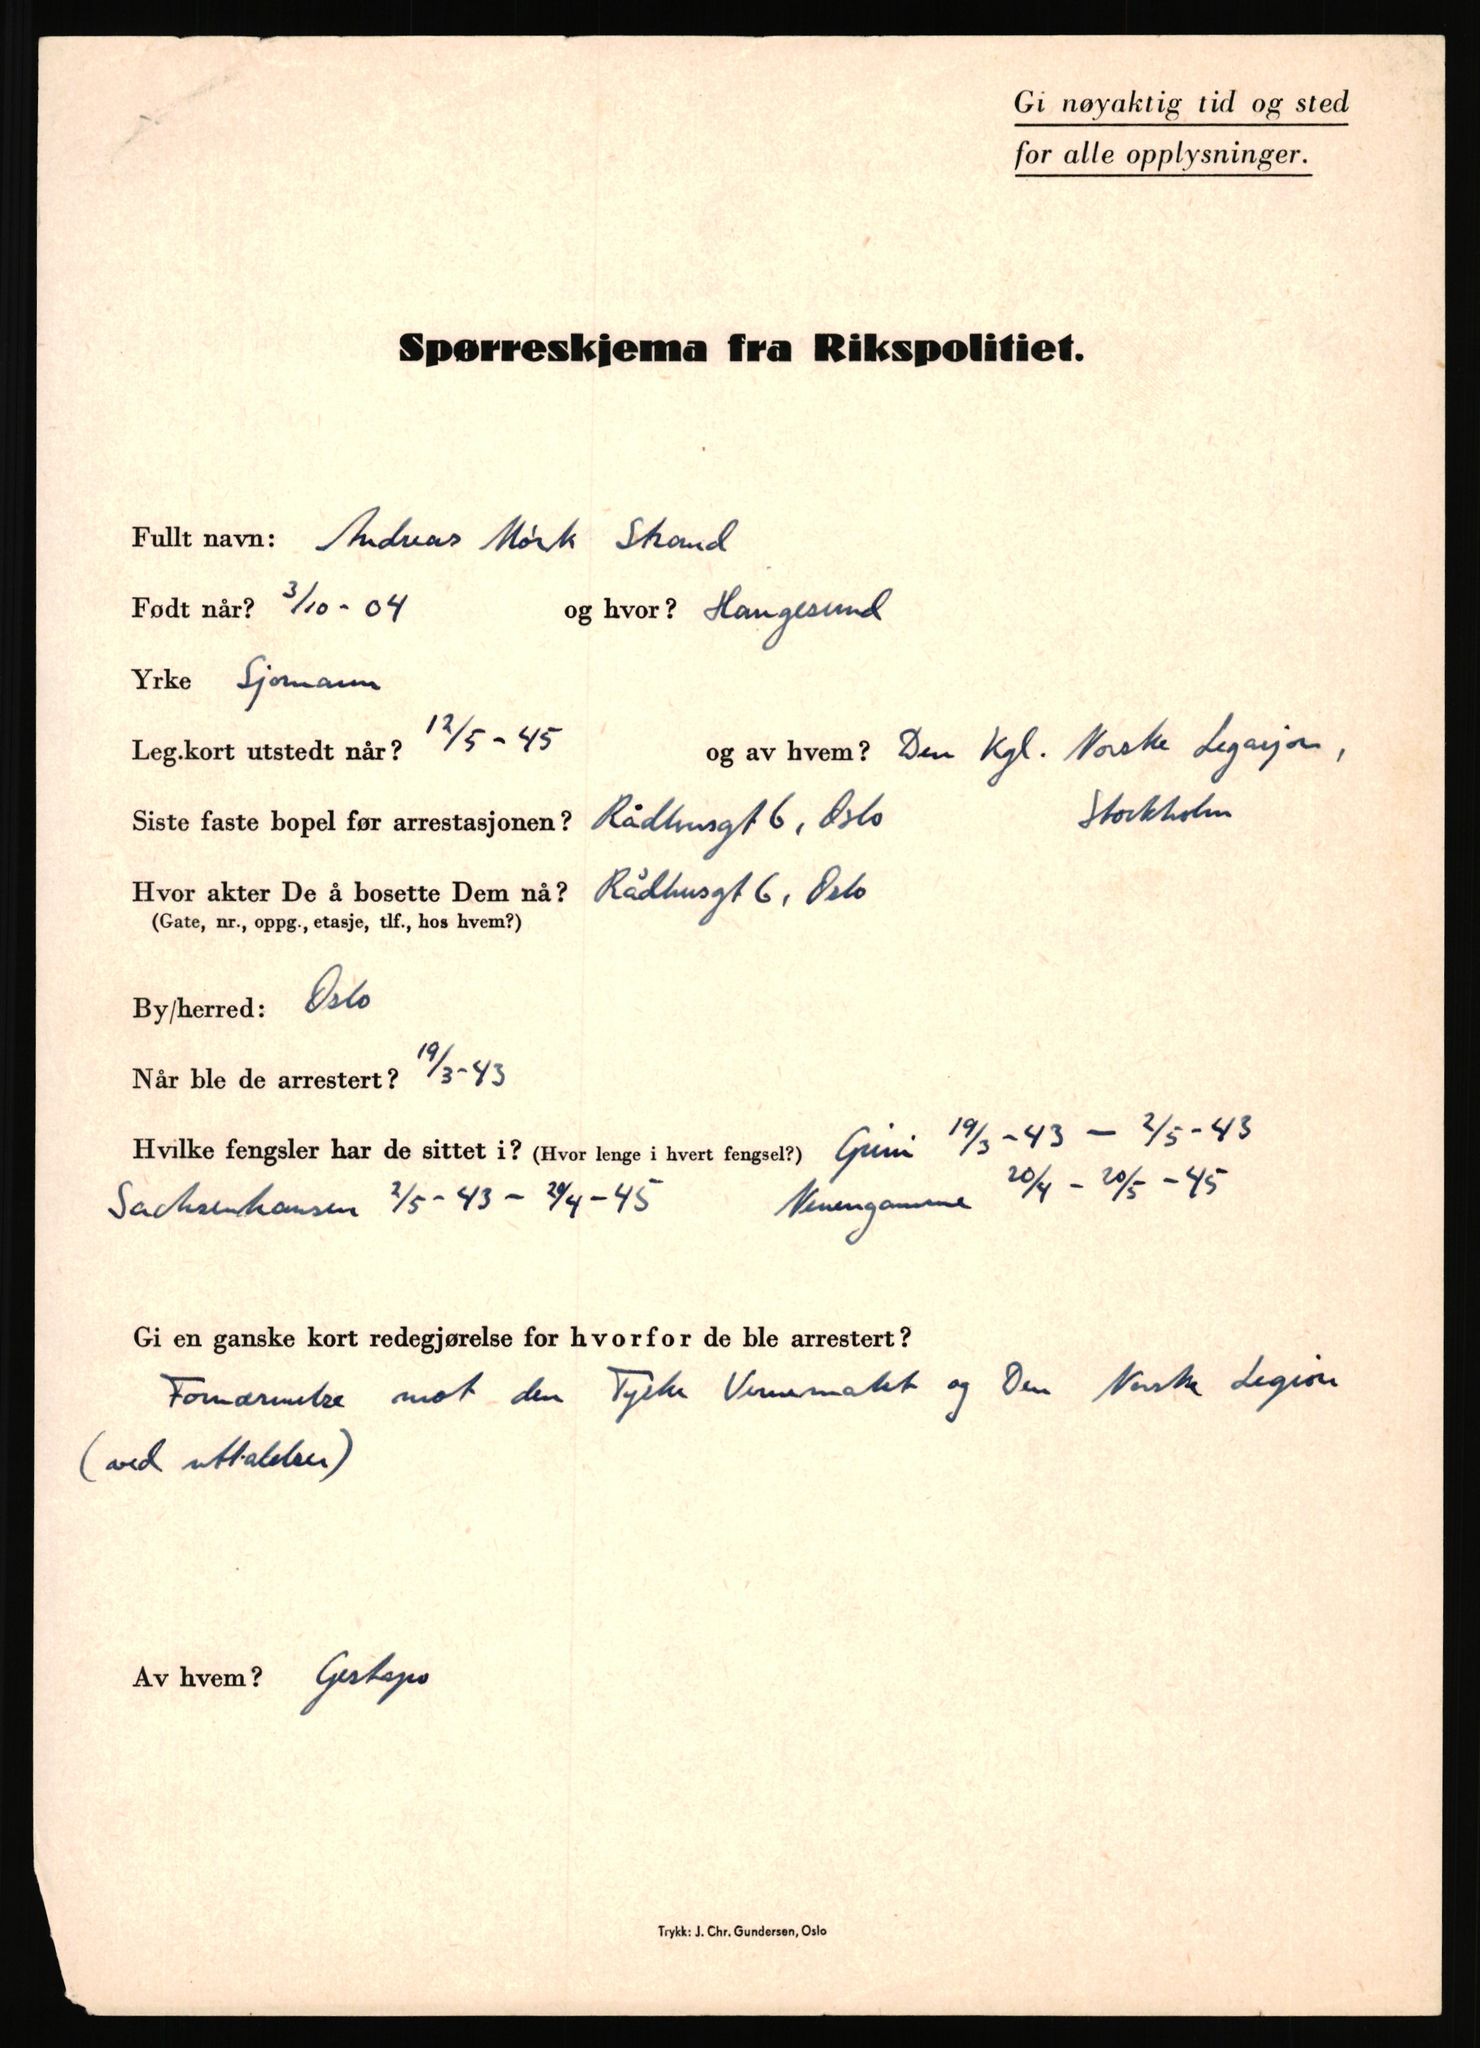 Gi nøyaktig tid og sted
for alle opplysninger.
Spørreskjema fra Rikspolitiet.
Fullt navn: Andreas Mørk Strand
Født når? 3/10-04 og hvor? Haugesund
Yrke Sjømann
Leg.kort utstedt når? 12/5-45 og av hvem? Den Kgl. Norske Legasjon,
Stockholm
Siste faste bopel før arrestasjonen? Rådhusgt 6, Oslo
Hvor akter De å bosette Dem nå? Rådhusgt 6, Oslo
(Gate, nr., oppg., etasje, tlf., hos hvem?)
By/herred: Oslo
Når ble de arrestert? 19/3-43
Hvilke fengsler har de sittet i? (Hvor lenge i hvert fengsel?) Grini 19/3-43 — 2/5-43
Sachsenhausen 2/5-43 - 20/4-45 Neuengamme 20/4 - 20/5-45
Gi en ganske kort redegjørelse for hvorfor de ble arrestert?
Fornærmelse mot den Tyske Vernemakt og Den Norske Legion
(ved uttalelser)
Av hvem? Gestapo
Trykk: J. Chr. Gundersen, Oslo